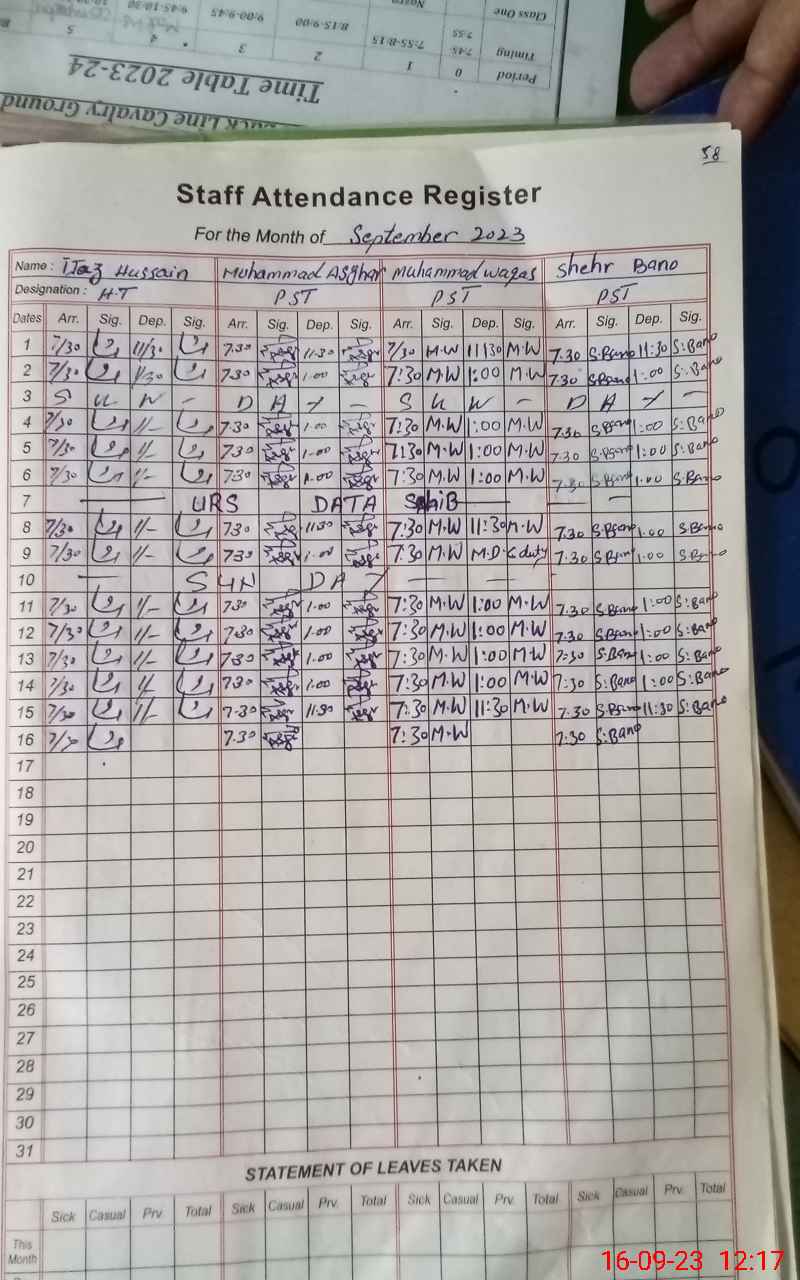 Class One
Timing 7:45- 7:55 7:55-8:15 8:15-9:00 9:00-9:45 9:45-10:30
Period 0 1 2 3 4 5
Time Table 2023-24
Line Cavalry Ground
58
Staff Attendance Register
For the Month of September 2023
Name : Ijaz Hussain Muhammad Asghar Muhammad Waqas Shehr Bano
Designation : H.T PST PST PST
Dates Arr. Sig. Dep. Sig. Arr. Sig. Dep. Sig. Arr. Sig. Dep. Sig. Arr. Sig. Dep. Sig.
1 7/30 11/30 7.30 11.30 7/30 M.W 11:30 M.W 7.30 S.Bano 11:30 S.Bano
2 7/30 1/30 7.30 1.00 7:30 M.W 1:00 M.W 7.30 S.Bano 1:00 S.Bano
3 S U N - D A Y - S U N - D A Y -
4 7/30 1/- 7.30 1.00 7:30 M.W 1:00 M.W 7.30 S.Bano 1:00 S.Bano
5 7/30 1/- 7.30 1.00 7:30 M.W 1:00 M.W 7.30 S.Bano 1:00 S.Bano
6 7/30 1/- 7.30 1.00 7:30 M.W 1:00 M.W 7.30 S.Bano 1.00 S.Bano
7 URS DATA SAHIB
8 7/30 1/- 7.30 11.30 7:30 M.W 11:30 M.W 7.30 S.Bano 1.00 S.Bano
9 7/30 1/- 7.30 1.00 7:30 M.W duty 7.30 S.Bano 1.00 S.Bano
10 SUN DAY
11 7/30 1/- 7.30 1.00 7:30 M.W 1:00 M.W 7.30 S.Bano 1:00 S.Bano
12 7/30 1/- 7.30 1.00 7:30 M.W 1:00 M.W 7.30 S.Bano 1:00 S.Bano
13 7/30 1/- 7.30 1.00 7:30 M.W 1:00 M.W 7:30 S.Bano 1:00 S.Bano
14 7/30 1/- 7.30 1.00 7:30 M.W 1:00 M.W 7:30 S.Bano 1:00 S.Bano
15 7/30 1/- 7.30 11.30 7:30 M.W 11:30 M.W 7.30 S.Bano 11:30 S.Bano
16 7/30 7.30 7:30 M.W 7.30 S.Bano
17
18
19
20
21
22
23
24
25
26
27
28
29
30
31
STATEMENT OF LEAVES TAKEN
Sick Casual Prv. Total Sick Casual Prv. Total Sick Casual Prv. Total Sick Casual Prv. Total
This
Month
16-09-23 12:17